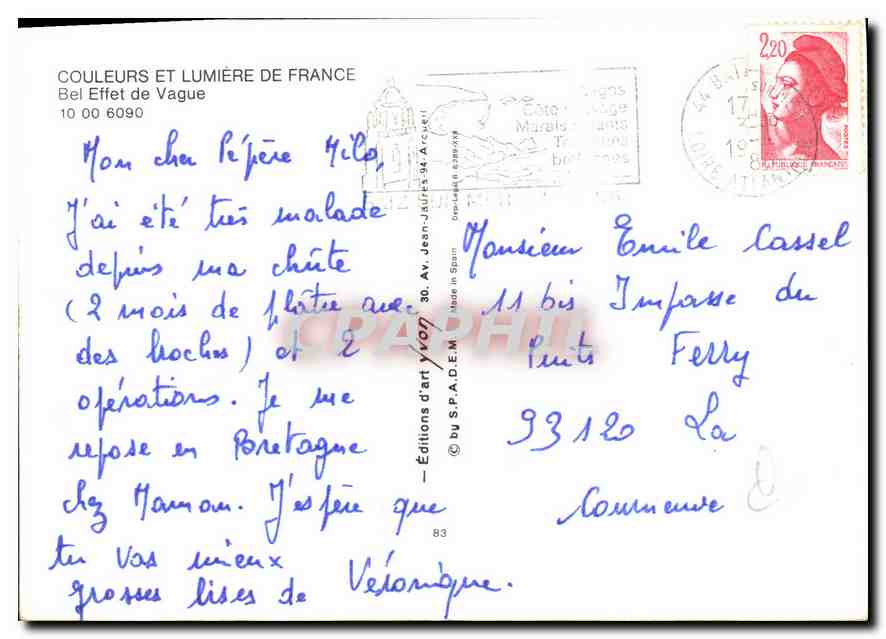 COULEURS ET LUMIÈRE DE FRANCE
Bel Effet de Vague
10 00 6090
Mon cher Pépère Milo,
J'ai été très malade
depuis ma chûte
(2 mois de plâtre avec
des broches) et 2
opérations. Je me
repose en Bretagne
chez Maman. J'espère que
tu vas mieux
grosses bises de Véronique.
— Éditions d'art yvon 30. Av. Jean-Jaurès-94-Arcueil
© by S.P.A.D.E.M. Made in Spain Dep-Legal B. 8389-XXX
83
Côte
Marais
2,20
POSTES
REPUBLIQUE FRANÇAISE
44 BATZ SUR
17
19
8
LOIRE ATLANTI
Monsieur Emile Cassel
11 bis Impasse du
Puits Ferry
93120 La
Courneuve
CPAPHIL